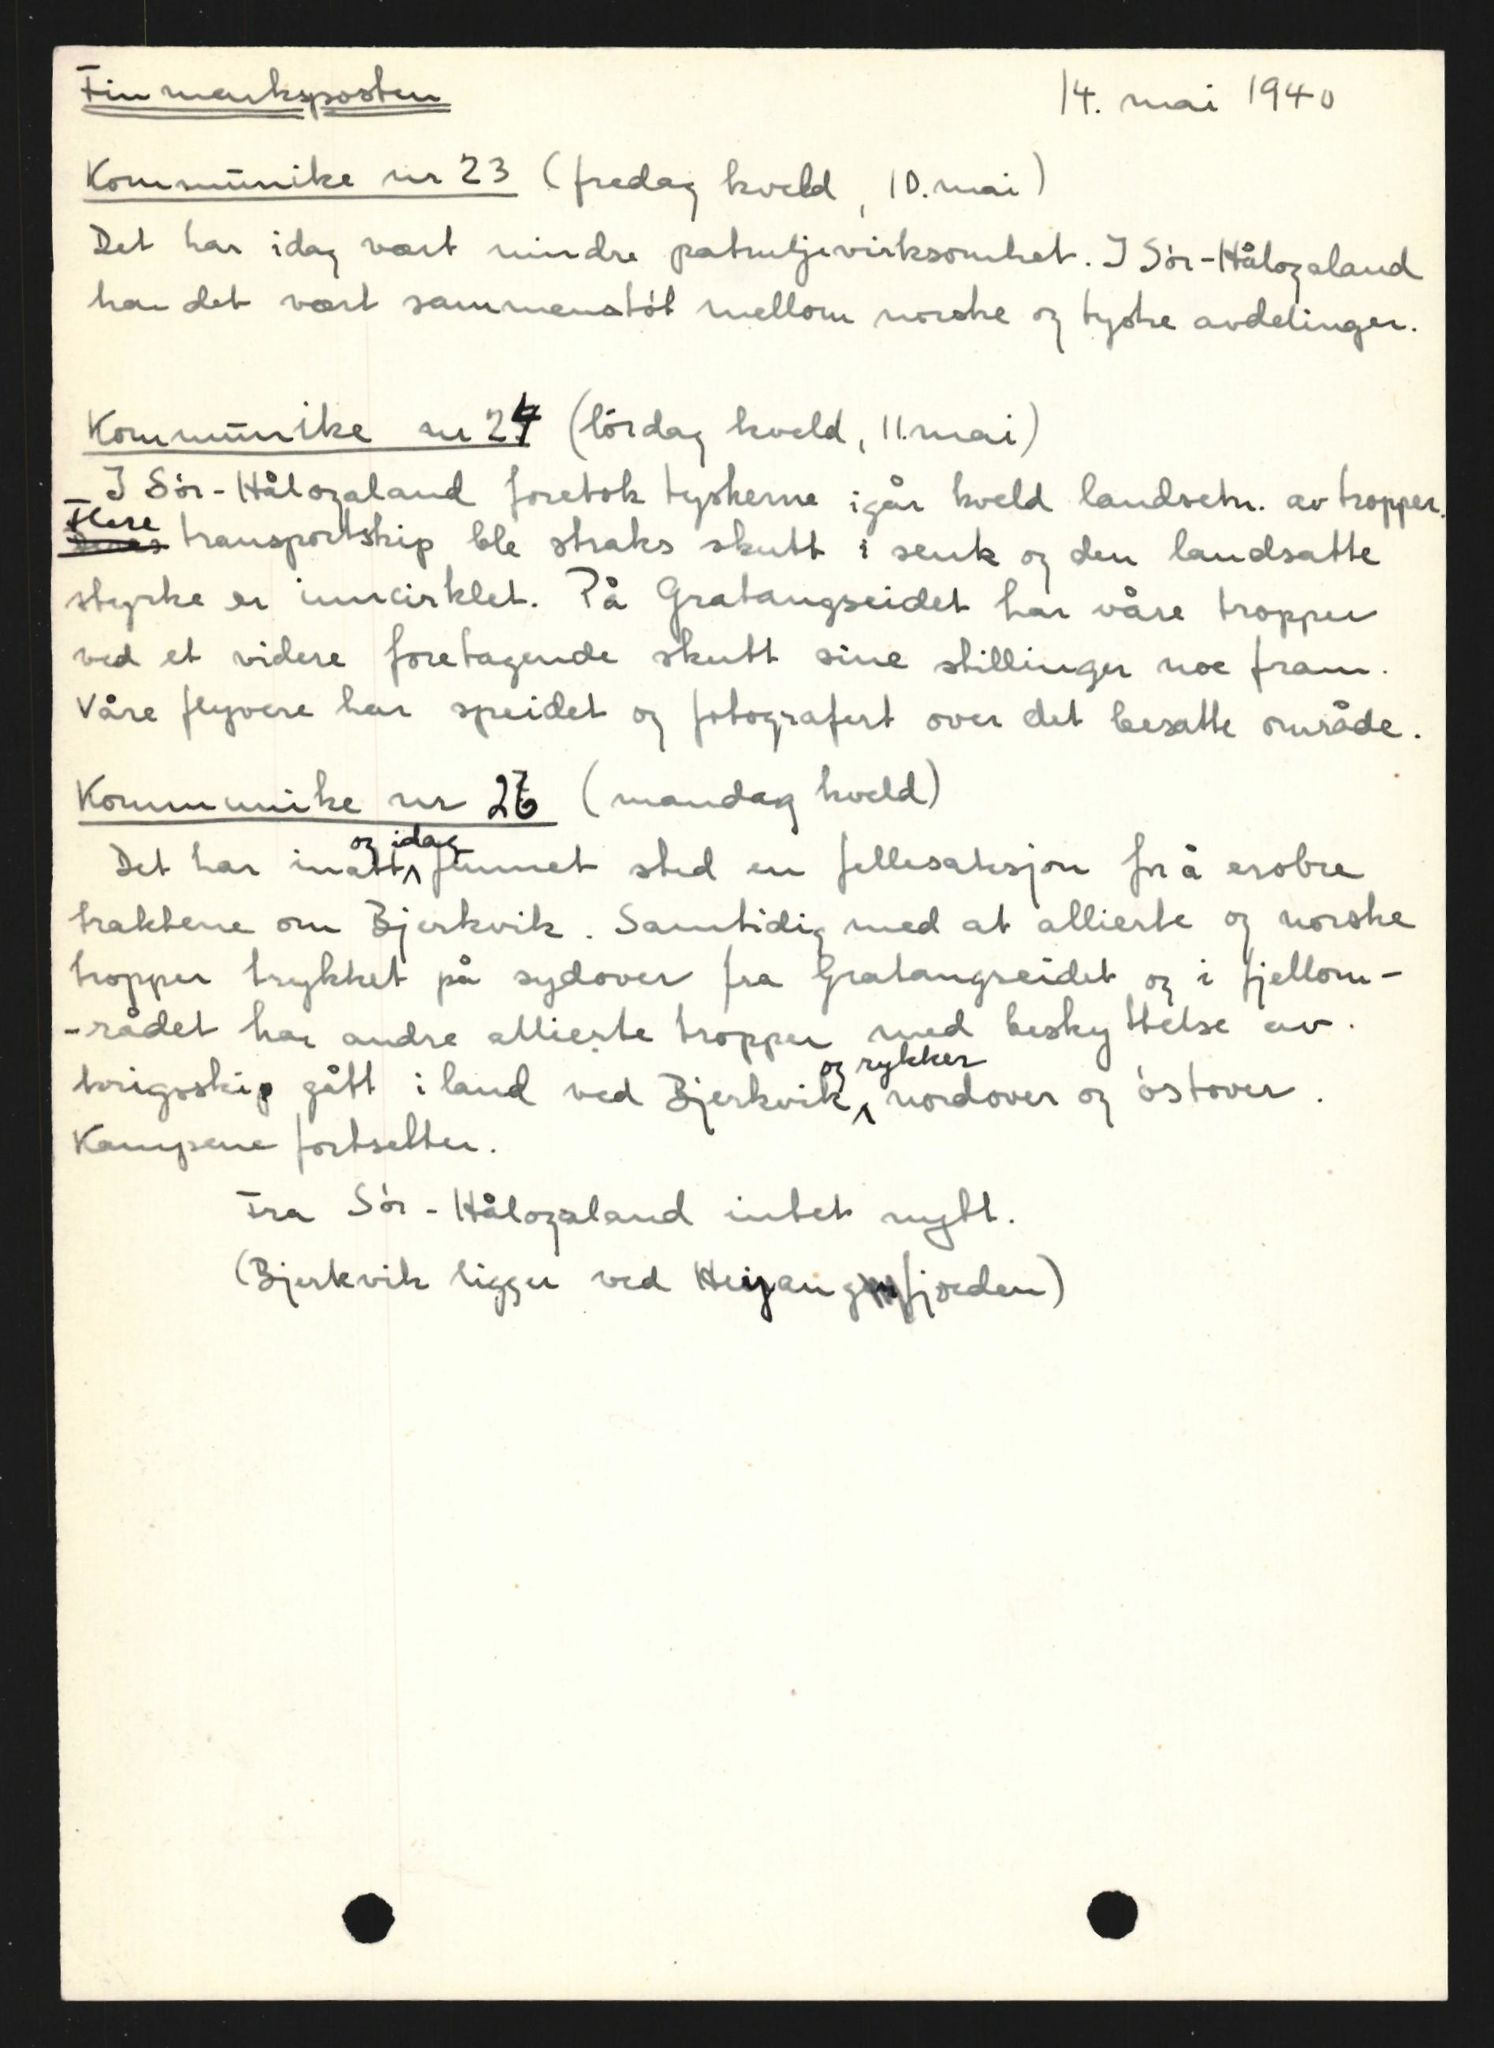 Finmarksposten 14. mai 1940
Kommunike nr 23 (fredag kveld, 10. mai)
Det har idag vært mindre patruljevirksomhet. I Sór-Hålogaland
har det vært sammenstót mellom norske og tyske avdelinger.
Kommunike nr 24 (lórdag kveld, 11. mai)
I Sór-Hålogaland foretok tyskerne igår kveld landsetn. av tropper.
Flere transportskip ble straks skutt i senk og den landsatte
styrke er inncirklet. På Gratangseidet har våre tropper
ved et videre foretagende skutt sine stillinger noe fram.
Våre flyvere har speidet og fotografert over det besatte område.
Kommunike nr 26 (mandag kveld)
Det har inatt og idag funnet sted en fellesaksjon for å erobre
traktene om Bjerkvik. Samtidig med at allierte og norske
tropper trykket på sydover fra Gratangseidet og i fjellom-
-rådet har andre allierte tropper med beskyttelse av
krigsskip gått i land ved Bjerkvik og rykker nordover og óstover.
Kampene fortsetter.
Fra Sór-Hålogaland intet nytt.
(Bjerkvik ligger ved fjorden)